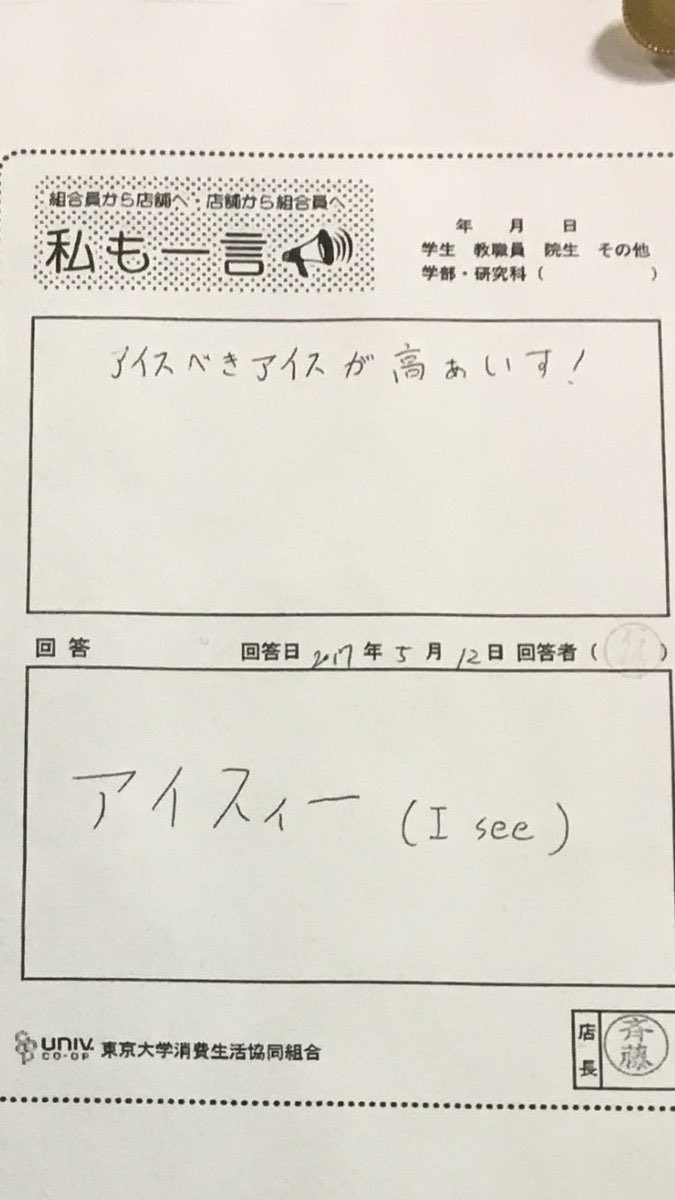 組合員から店舗へ・店舗から組合員へ
私も一言
年 月 日
学生 教職員 院生 その他
学部・研究科( )
アイスべきアイスが高ぁいす!
回答 回答日 2017年5月12日 回答者( )
アイスィー (I see)
UNIV. CO-OP 東京大学消費生活協同組合
店長 斉藤